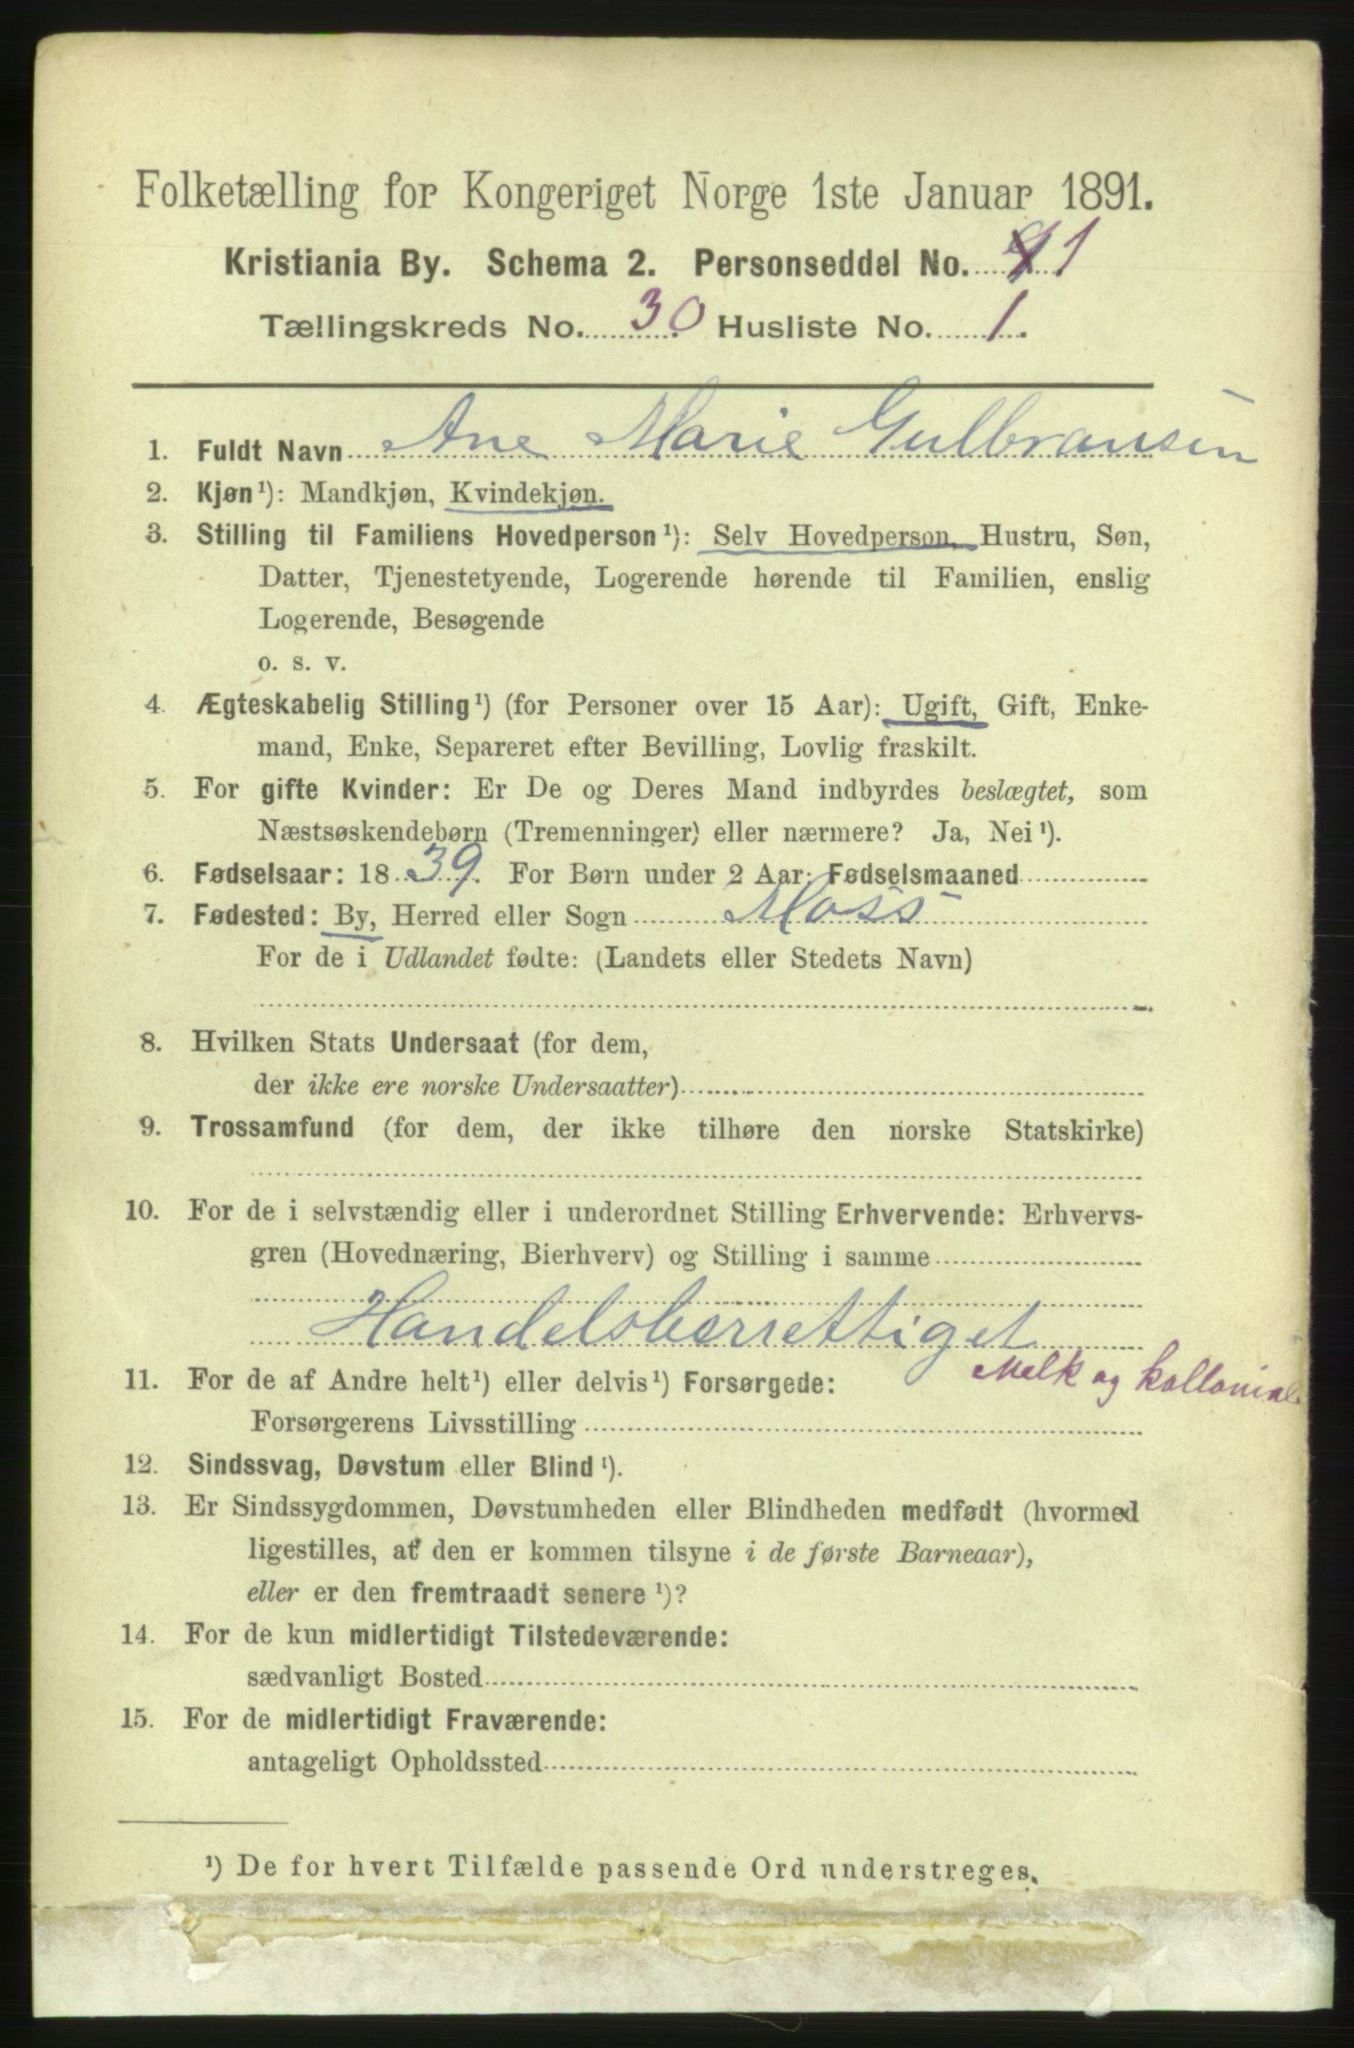 Folketælling for Kongeriget Norge 1ste Januar 1891.
Kristiania By. Schema 2. Personseddel No. 1
Tællingskreds No. 30 Husliste No. 1.
1. Fuldt Navn Ane Marie Gulbransen
2. Kjøn¹): Mandkjøn, Kvindekjøn.
3. Stilling til Familiens Hovedperson¹): Selv Hovedperson, Hustru, Søn,
Datter, Tjenestetyende, Logerende hørende til Familien, enslig
Logerende, Besøgende
o. s. v.
4. Ægteskabelig Stilling¹) (for Personer over 15 Aar): Ugift, Gift, Enke-
mand, Enke, Separeret efter Bevilling, Lovlig fraskilt.
5. For gifte Kvinder: Er De og Deres Mand indbyrdes beslægtet, som
Næstsøskendebørn (Tremenninger) eller nærmere? Ja, Nei¹).
6. Fødselsaar: 1839. For Børn under 2 Aar: Fødselsmaaned
7. Fødested: By, Herred eller Sogn Moss
For de i Udlandet fødte: (Landets eller Stedets Navn)
8. Hvilken Stats Undersaat (for dem,
der ikke ere norske Undersaatter)
9. Trossamfund (for dem, der ikke tilhøre den norske Statskirke)
10. For de i selvstændig eller i underordnet Stilling Erhvervende: Erhvervs-
gren (Hovednæring, Bierhverv) og Stilling i samme
Handelsberettiget
Melk og kollonial.
11. For de af Andre helt¹) eller delvis¹) Forsørgede:
Forsørgerens Livsstilling
12. Sindssvag, Døvstum eller Blind¹).
13. Er Sindssygdommen, Døvstumheden eller Blindheden medfødt (hvormed
ligestilles, at den er kommen tilsyne i de første Barneaar),
eller er den fremtraadt senere¹)?
14. For de kun midlertidigt Tilstedeværende:
sædvanligt Bosted
15. For de midlertidigt Fraværende:
antageligt Opholdssted
¹) De for hvert Tilfælde passende Ord understreges.